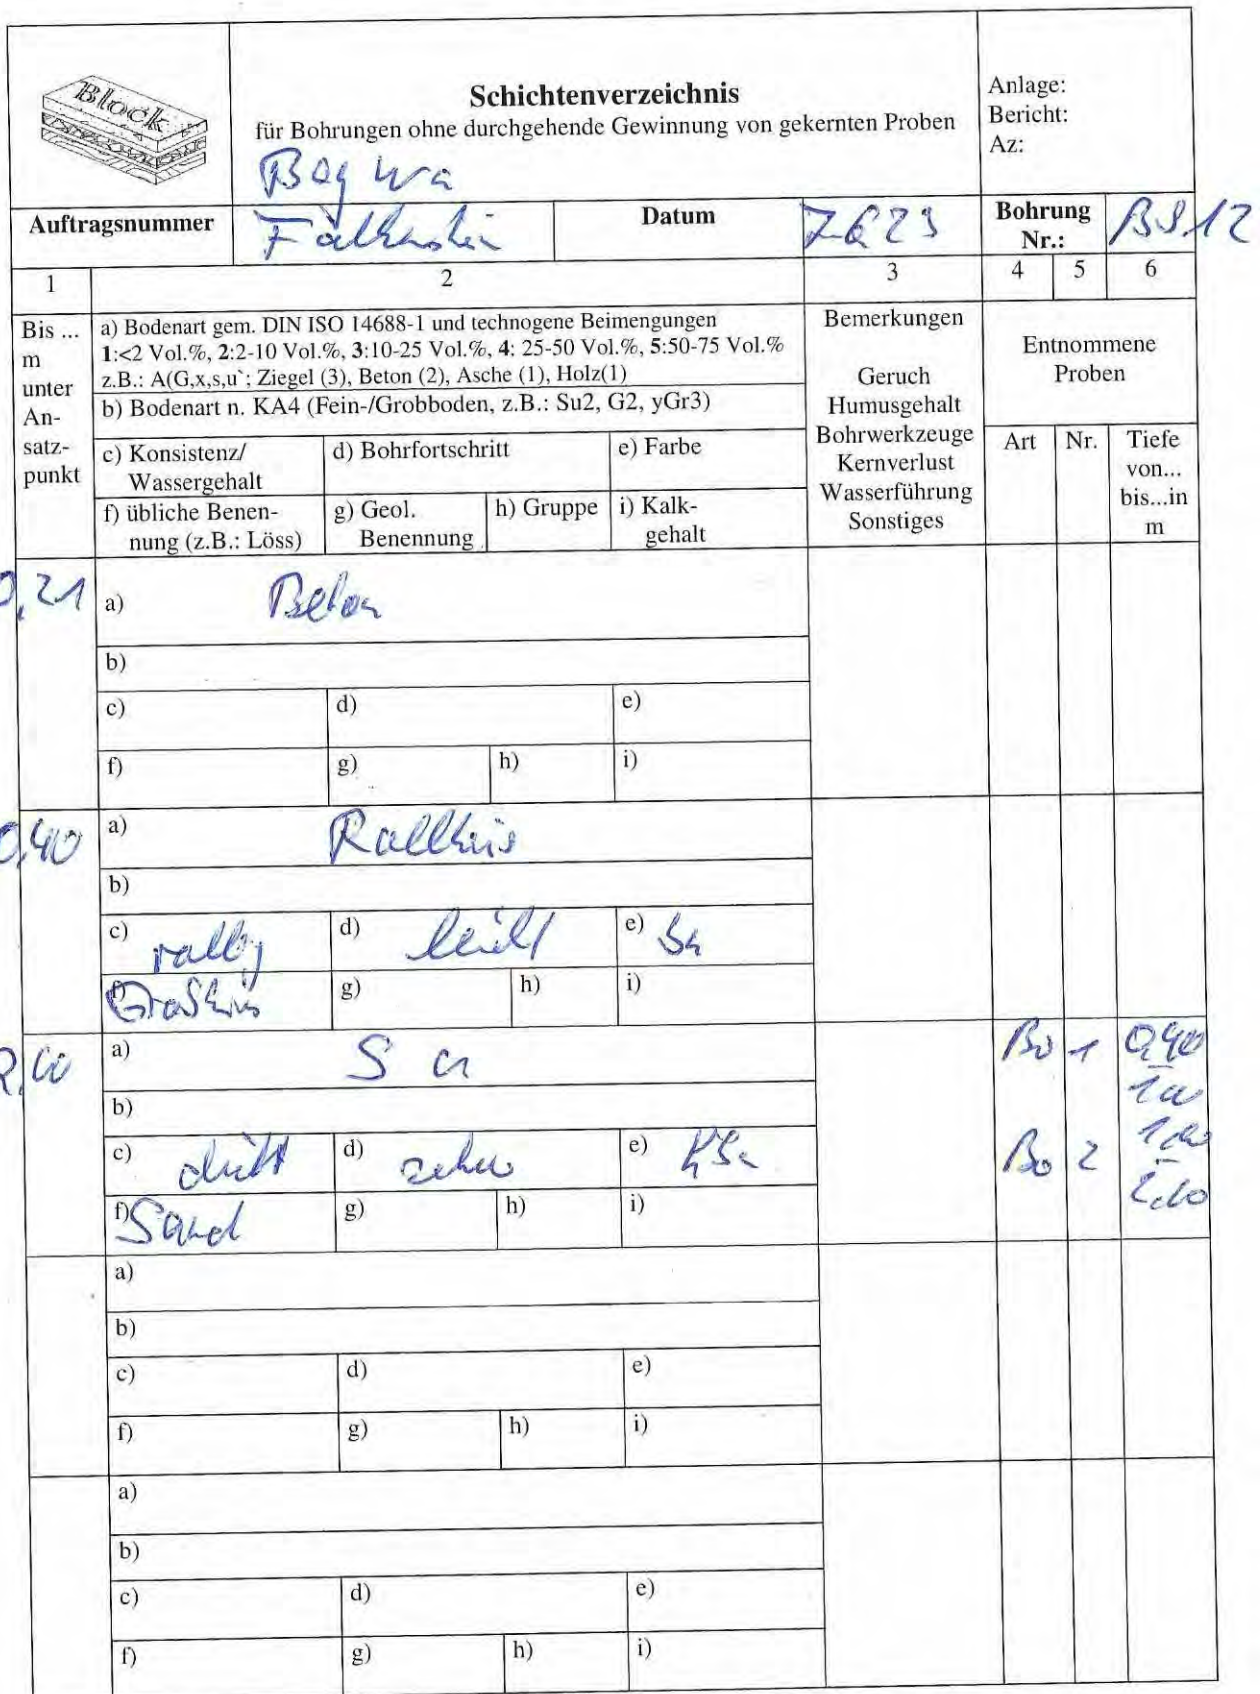 Block
Schichtenverzeichnis
für Bohrungen ohne durchgehende Gewinnung von gekernten Proben
Anlage:
Bericht:
Az:
Auftragsnummer
Datum
7.6.23
Bohrung
Nr.:
BS 12
1
2
3
4
5
6
Bis ...
m
unter
An-
satz-
punkt
a) Bodenart gem. DIN ISO 14688-1 und technogene Beimengungen
1:<2 Vol.%, 2:2-10 Vol.%, 3:10-25 Vol.%, 4: 25-50 Vol.%, 5:50-75 Vol.%
z.B.: A(G,x,s,u`; Ziegel (3), Beton (2), Asche (1), Holz(1)
b) Bodenart n. KA4 (Fein-/Grobboden, z.B.: Su2, G2, yGr3)
c) Konsistenz/
Wassergehalt
d) Bohrfortschritt
e) Farbe
f) übliche Benen-
nung (z.B.: Löss)
g) Geol.
Benennung
h) Gruppe
i) Kalk-
gehalt
Bemerkungen
Geruch
Humusgehalt
Bohrwerkzeuge
Kernverlust
Wasserführung
Sonstiges
Entnommene
Proben
Art
Nr.
Tiefe
von...
bis...in
m
0,21
a) Beton
b)
c)
d)
e)
f)
g)
h)
i)
0,40
a) Rollkies
b)
c) rollig
d) leicht
e)
f)
g)
h)
i)
a) S
b)
c)
d)
e)
f) Sand
g)
h)
i)
Bo 1 0,40
-
1,00
Bo 2 1,00
-
a)
b)
c)
d)
e)
f)
g)
h)
i)
a)
b)
c)
d)
e)
f)
g)
h)
i)